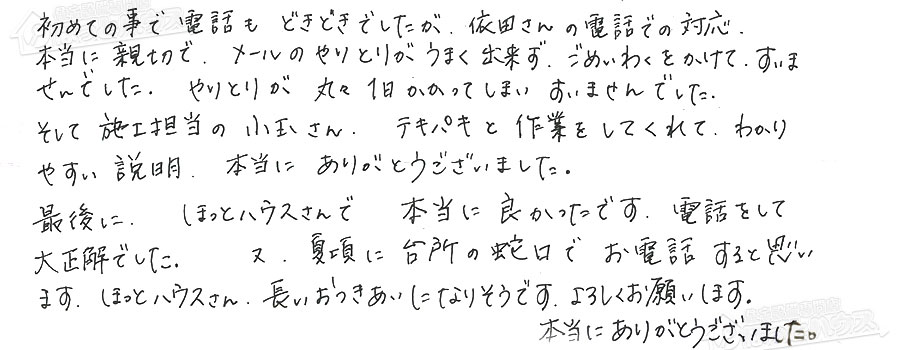 初めての事で電話もどきどきでしたが、依田さんの電話での対応、
本当に親切で、メールのやりとりがうまく出来ず、ごめいわくをかけて、すいま
せんでした。やりとりが丸々1日かかってしまいすいませんでした。
そして施工担当の小玉さん、テキパキと作業をしてくれて、わかり
やすい説明、本当にありがとうございました。
最後に、ほっとハウスさんで本当に良かったです。電話をして
大正解でした。又、夏頃に台所の蛇口でお電話すると思い
ます。ほっとハウスさん、長いおつきあいになりそうです。よろしくお願いします。
本当にありがとうございました。